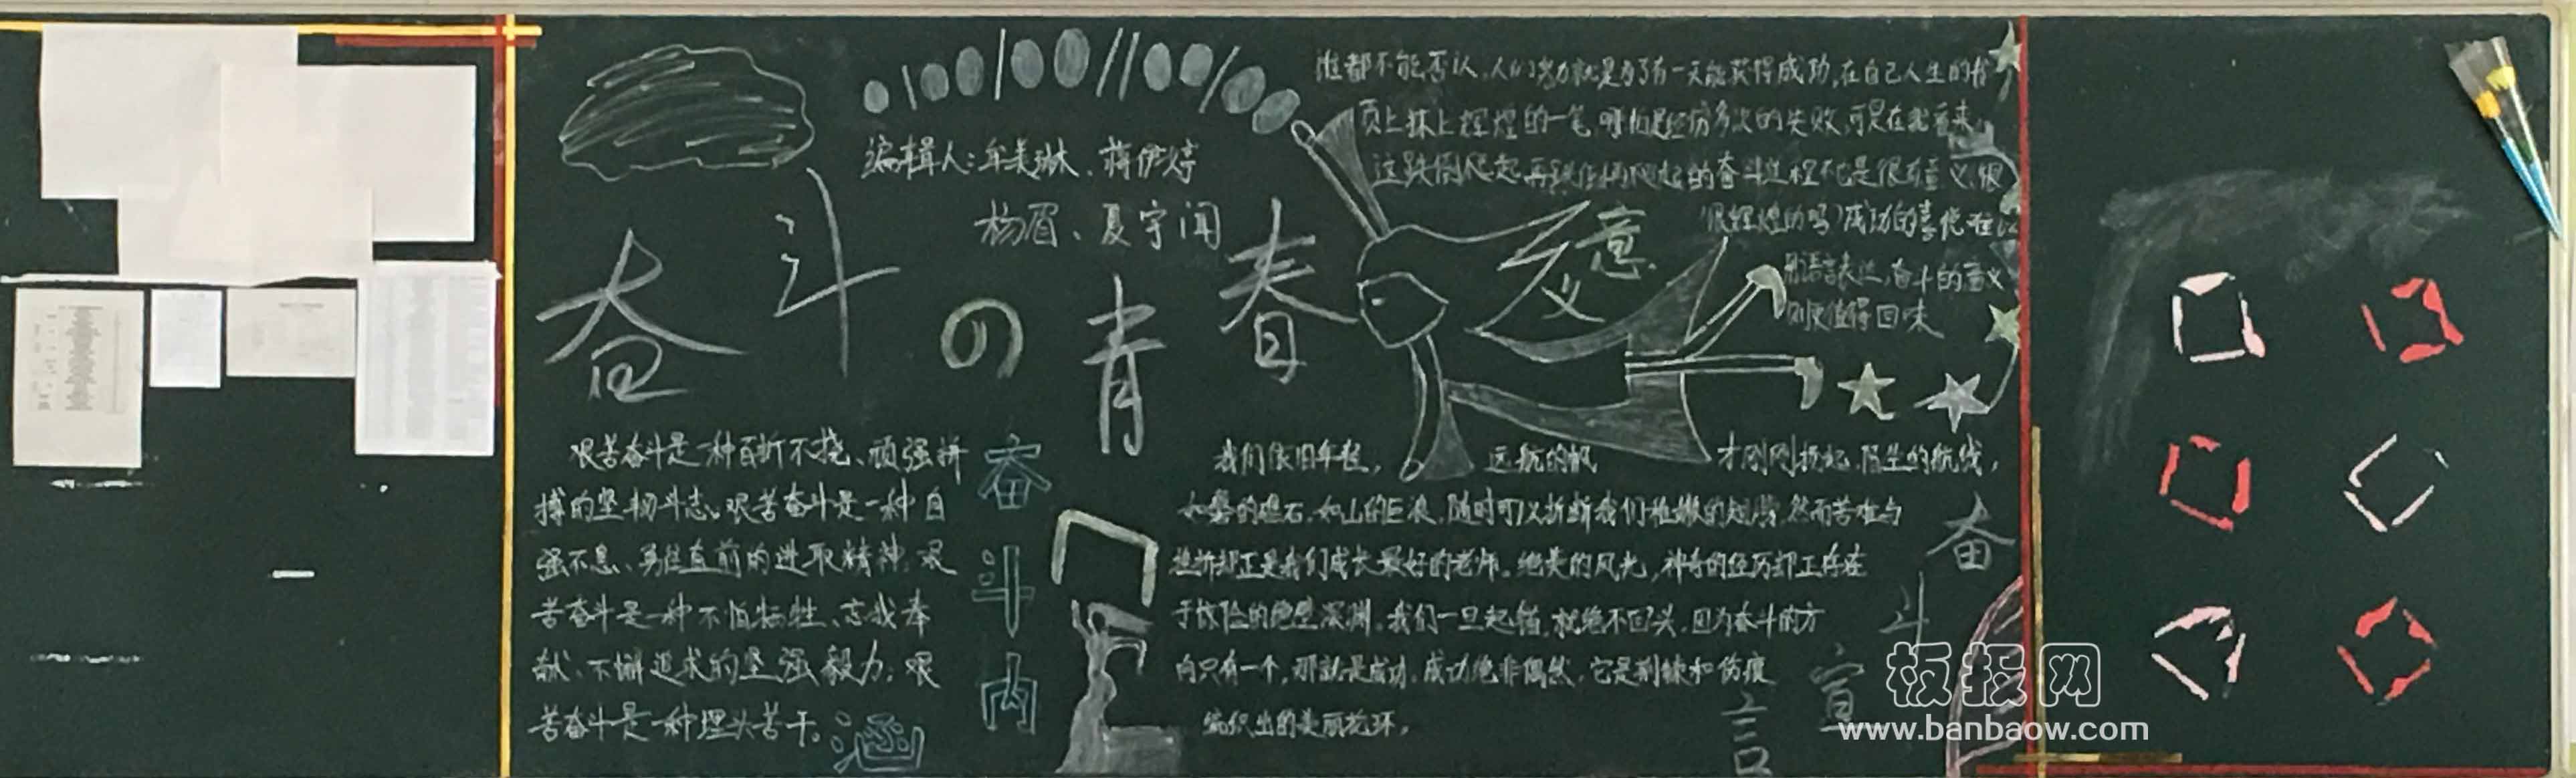 编辑人:牟美琳、蒋伊婷
杨眉、夏宇闻
奋斗の青春
谁都不能否认,人们努力就是为了有一天能获得成功,在自己人生的
页上抹上辉煌的一笔,哪怕是经历多次的失败,可是在我看来,
这跌倒爬起再跌倒再爬起的奋斗过程不也是很有意义,很
很辉煌的吗?成功的喜悦
用语言表达,奋斗的意义
则更值得回味
意义
艰苦奋斗是一种百折不挠、顽强拼
搏的坚韧斗志。艰苦奋斗是一种自
强不息、勇往直前的进取精神,艰
苦奋斗是一种不怕牺牲、忘我奉
献、不懈追求的坚强毅力;艰
苦奋斗是一种埋头苦干。
奋斗内涵
我们依旧年轻, 远航的帆 才刚刚扬起,陌生的航线,
如磐的礁石,如山的巨浪,随时可以折断我们稚嫩的翅膀,然而苦难与
挫折却正是我们成长最好的老师。绝美的风光,神奇的经历却正存在
于惊险的绝壁深渊。我们一旦起锚,就绝不回头,因为奋斗的方
向只有一个,那就是成功。成功绝非偶然,它是荆棘和伤痕
编织出的美丽花环。
奋斗宣言
板报网
www.banbaow.com